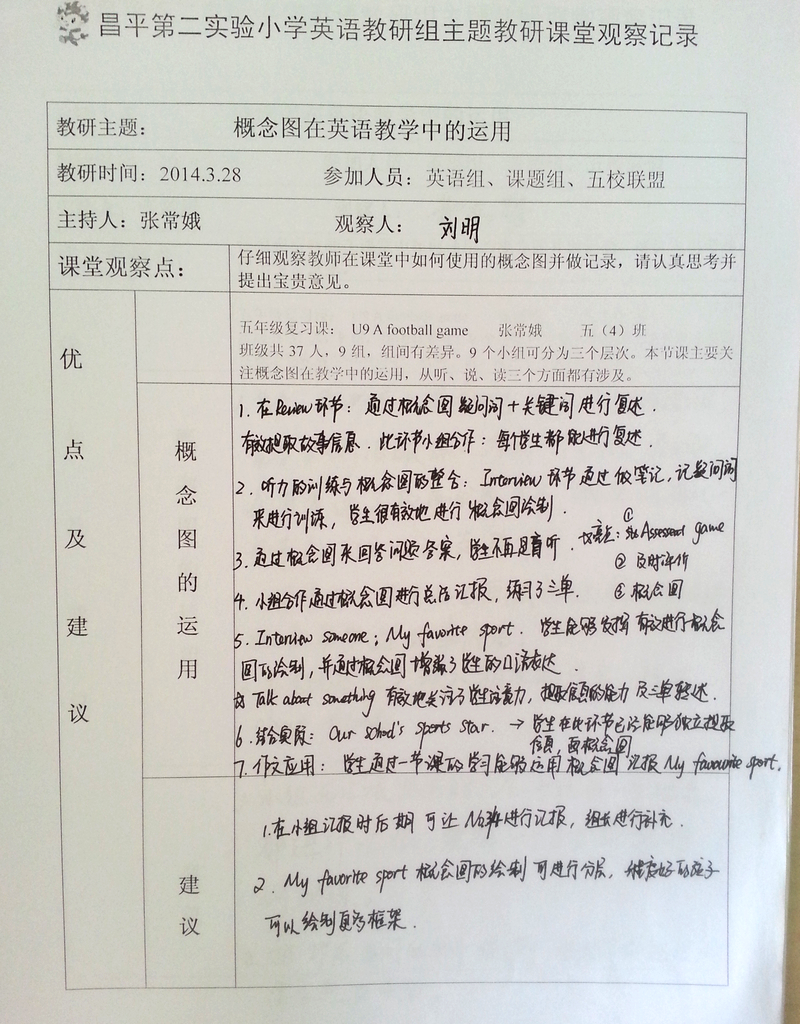 昌平第二实验小学英语教研组主题教研课堂观察记录
教研主题： 概念图在英语教学中的运用
教研时间：2014.3.28 参加人员：英语组、课题组、五校联盟
主持人：张常娥 观察人： 刘明
课堂观察点： 仔细观察教师在课堂中如何使用的概念图并做记录，请认真思考并
提出宝贵意见。
优点及建议
五年级复习课： U9 A football game 张常娥 五（4）班
班级共 37 人，9 组，组间有差异。9 个小组可分为三个层次。本节课主要关
注概念图在教学中的运用，从听、说、读三个方面都有涉及。
概念图的运用
1. 在Review环节：通过概念图疑问词+关键词进行复述.
有效提取故事信息. 此环节小组合作：每个学生都能进行复述.
2. 听力的训练与概念图的整合：Interview 环节通过做笔记，记疑问词
来进行训练，学生很有效地进行概念图绘制.
3. 通过概念图来回答问题答案，学生不再是盲听.
① Assessment game
② 及时评价
③ 概念图
4. 小组合作通过概念图进行总结汇报，练习了三单.
5. Interview someone; My favorite sport. 学生能够 有效进行概念
图的绘制，并通过概念图增强了学生的口语表达.
Talk about something 有效地关注了学生注意力，提取信息的能力及三单转述.
6. 结合实际：Our school's sports star. → 学生在此环节已经能够独立提取
信息，画概念图
7. 作文应用：学生通过一节课的学习能够运用概念图汇报My favourite sport.
建议
1.在小组汇报时后期可让 进行汇报，组长进行补充.
2. My favorite sport 概念图的绘制可进行分层，程度好的孩子
可以绘制更多框架.